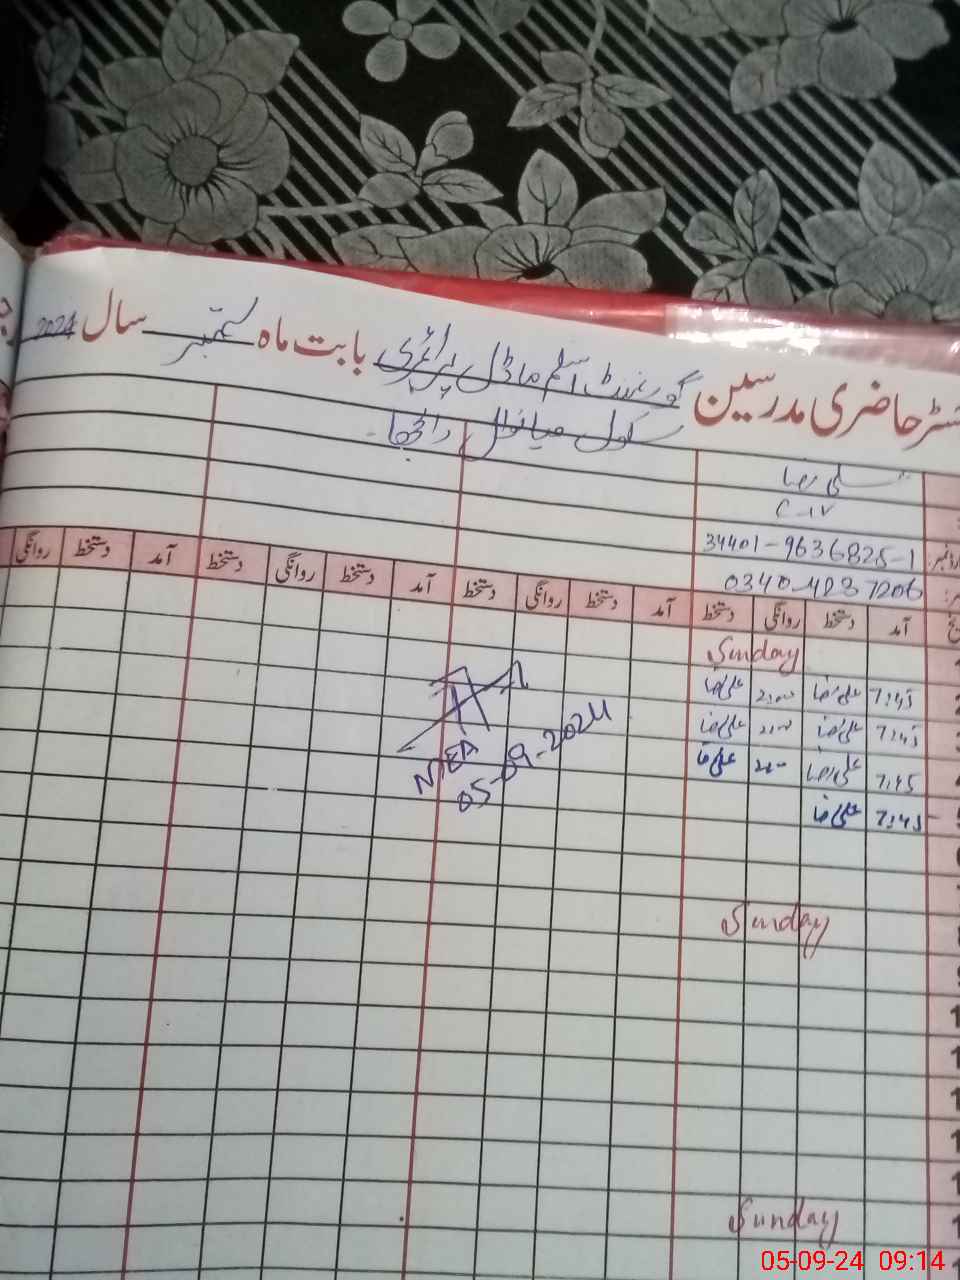 حاضری مدرسین گورنمنٹ اسلم ماڈل پرائمری بابت ماہ ستمبر سال 2024
سکول میانوال رانجھا
علی رضا
34401-9636825-1
0340-4237206
آمد دستخط روانگی دستخط آمد دستخط روانگی دستخط آمد دستخط روانگی دستخط آمد دستخط روانگی
Sunday
7:45 علی رضا علی رضا
7:45 علی رضا علی رضا
7:45 علی رضا علی رضا
7:45 علی رضا
MEA
05-09-2024
Sunday
Sunday
05-09-24 09:14